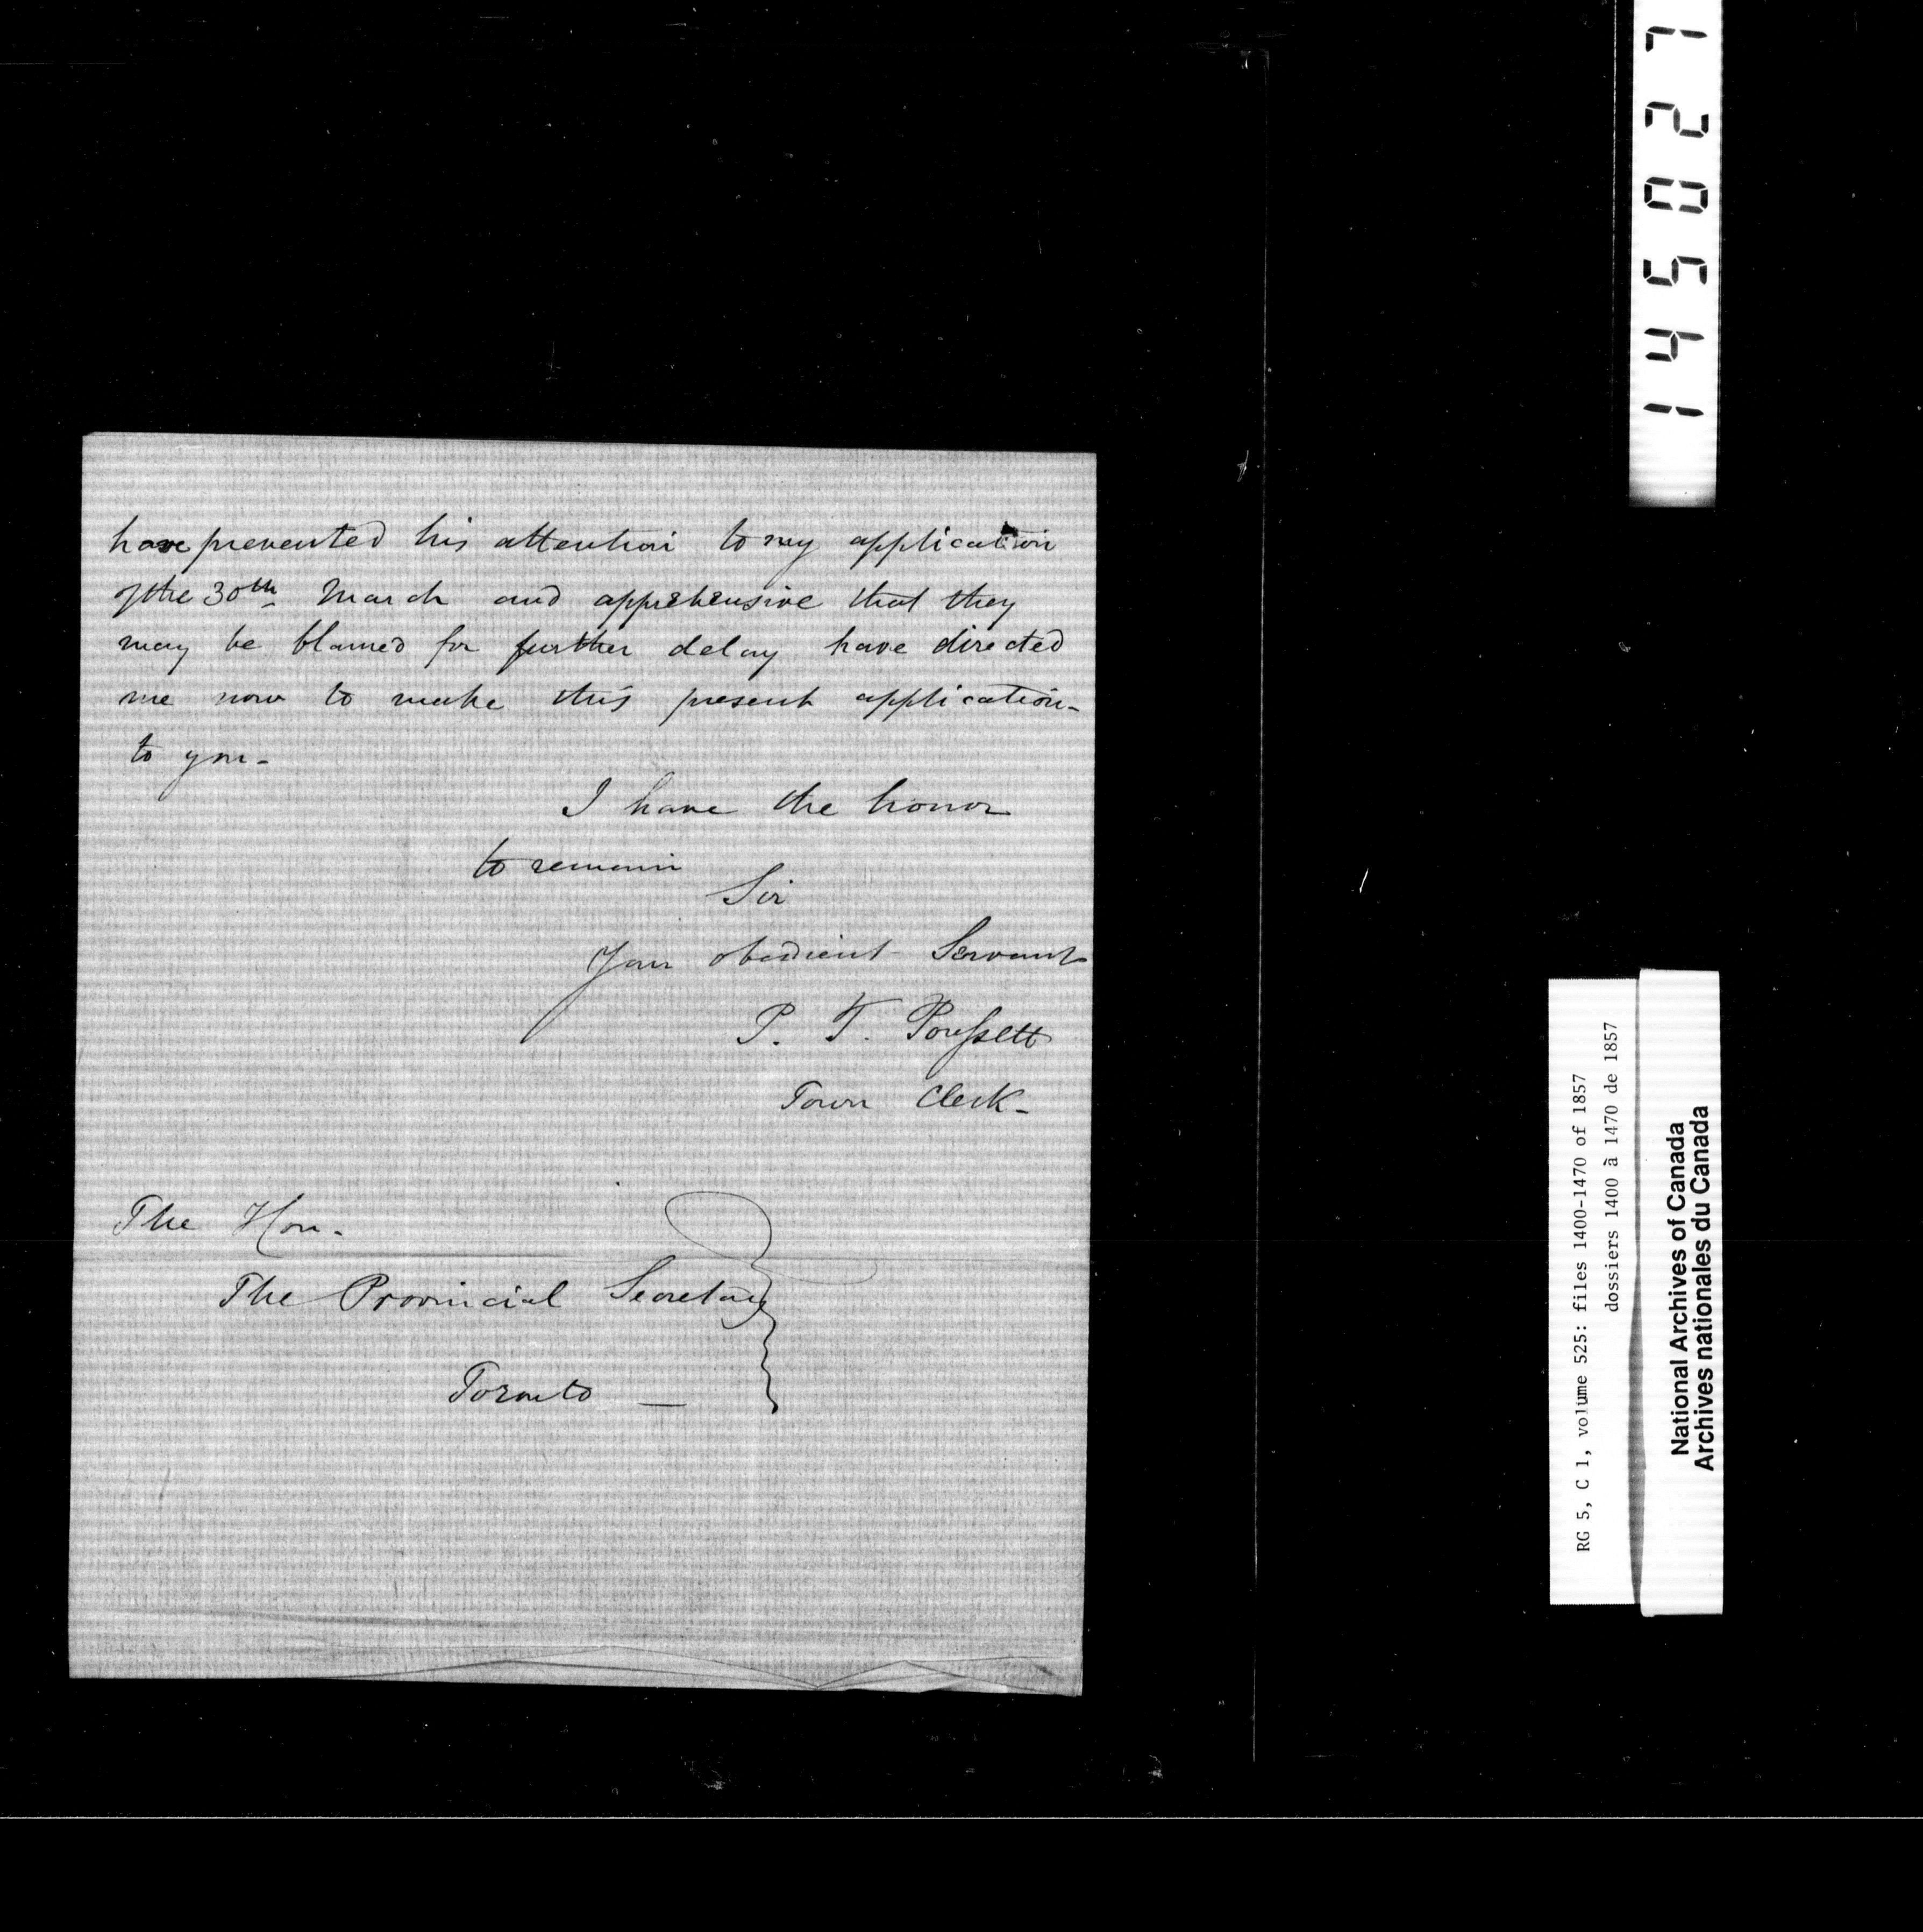 have prevented his attention to my application
of the 30th March and apprehensive that they
may be blamed for further delay have directed
me now to make this present application-
to you-
I have the honor
to remain
Sir
Your obedient Servant
P. T. Poussett
Town Clerk-
The Hon.
The Provincial Secretary
Toronto —
145027
RG 5, C 1, volume 525: files 1400-1470 of 1857
dossiers 1400 à 1470 de 1857
National Archives of Canada
Archives nationales du Canada